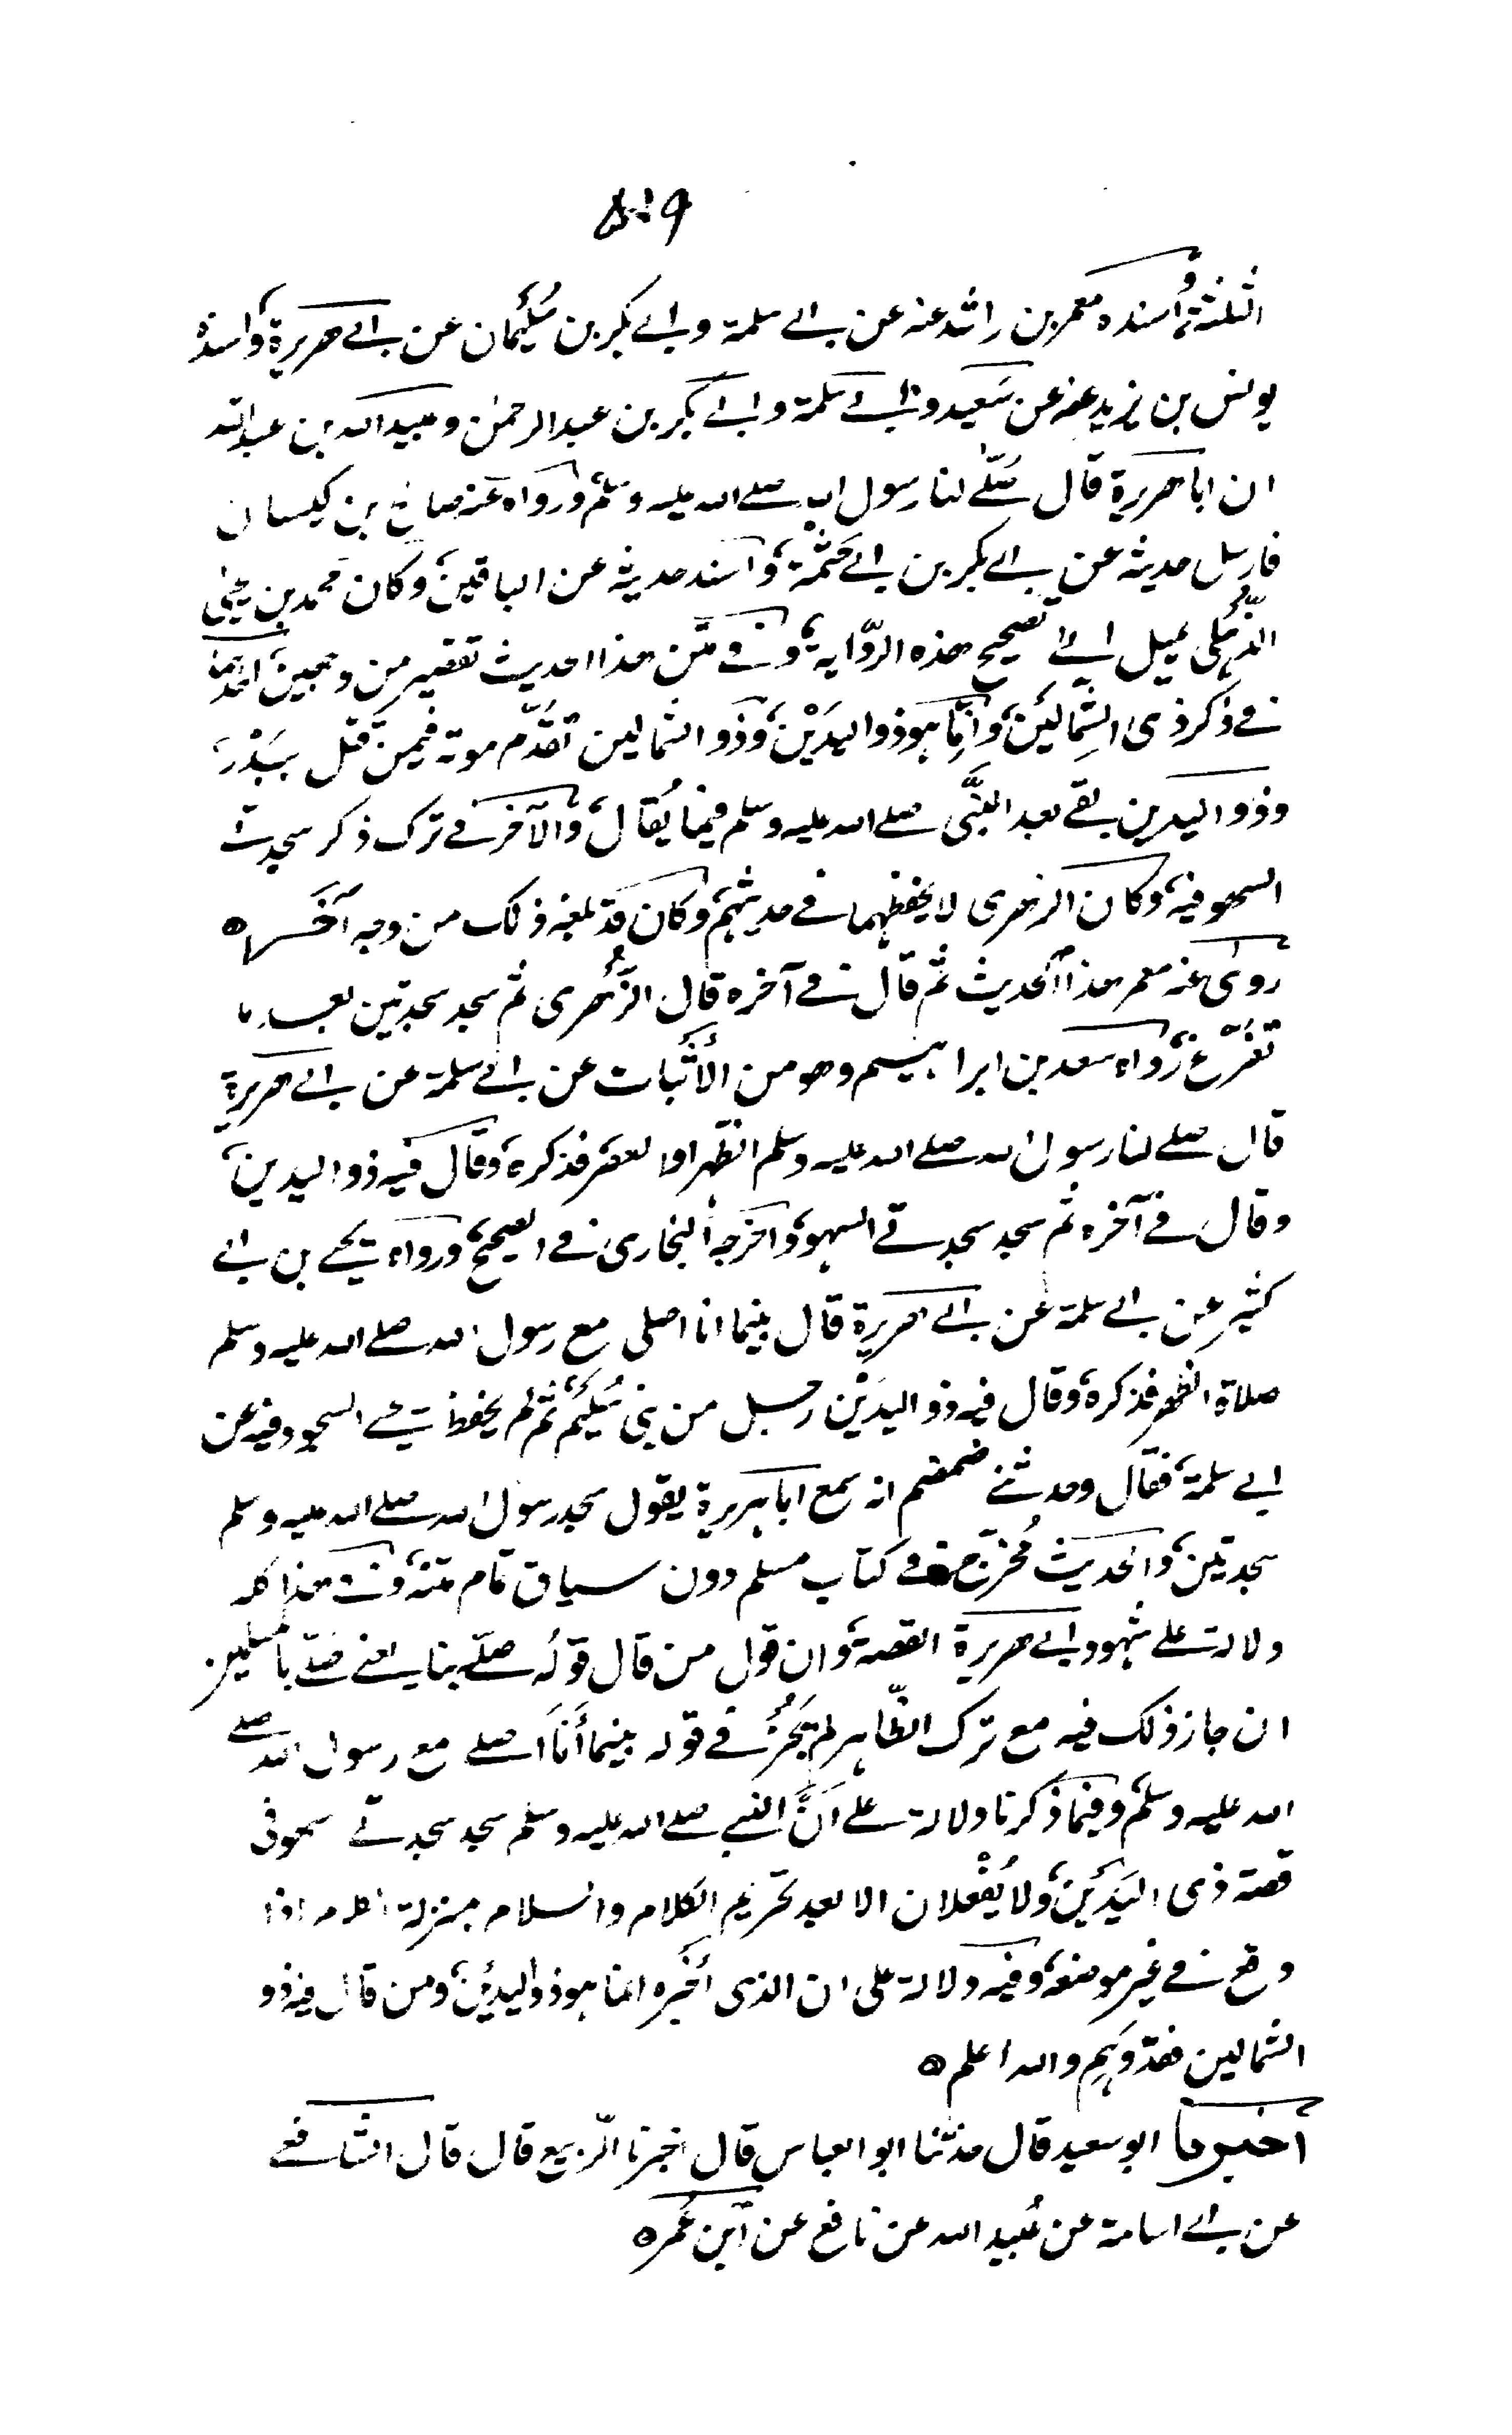 ٥٠٩
الثلثة، وأسنده معمر بن راشد عنه عن ابے سلمة وابے بكر بن سُلَيْمان عن ابے هريرة، واسنده
يونس بن يزيد عنه عن سَعيد وابے سَلمة وابے بكر بن عبد الرحمٰن وعبيد الله بن عبد الله
ان ابا هريرة قال صَلّٰے لنا رسول الله صلے الله عليه وسلم، ورواه عنه صالح بن كيسان
فارسل حديثه عن ابے بكر بن ابے حَثْمة، وأسند حديثه عن الباقين، وكان محمد بن يحيٰى
الذُّهْلى يميل الے تصحيح هذه الرّواية، وفے متن هذا الحديث تقصير من وجهين، احدهما
فے ذكر ذى الشِّمالَيْن، وانّما هو ذو اليدَيْن، وذو الشمالين تقدّم موته فيمن قتل ببَدْرٍ
وذو اليدين بقے بعد النبَّى صلے الله عليه وسلم فيما يُقال، والآخر فے ترك ذكر سجدتے
السهو فيه، وكان الزهرى لا يحفظهما فے حديثهم، وكان قد بلغه ذلك من وجه آخَر ٥
روى عنه معمر هذا الحديث ثم قال فے آخره قال الزُّهرى ثم سجد سجدتين بعد ما
تفرّغ، رواه سعد بن ابراهيم وهو من الأثبات عن ابے سلمة عن ابے هريرة
قال صلے لنا رسول الله صلے الله عليه وسلم الظهر او العصر فذكره، وقال فيه ذو اليدين،
وقال فے آخره ثم سجد سجدتے السهو، واخرجه البخارى فے الصحيح، ورواه يحيے بن ابے
كثير عن ابے سلمة عن ابے هريرة قال بينما انا اصلى مع رسول الله صلے الله عليه وسلم
صلاة الظهر فذكره، وقال فيه ذو اليدَيْن رجل من بنى سُلَيْم، ثم لم يحفظ يحيے السجود فيه عن
ابے سلمة، فقال وحدثنے ضمضم انه سمع ابا هريرة يقول سجد رسول الله صلے الله عليه وسلم
سجدتين، والحديث مُخرّج فے كتاب مسلم دون سياق تمام متنه، وفے هذا كله
دلالة على شهود ابے هريرة القصة، وان قول من قال قوله صلّے بنا يعنے صلّے بالمسلمين
ان جاز ذلك فيه مع ترك الظّاهر لم يَجُزْ فے قوله بينما أنا اصلے مع رسول الله صلے
الله عليه وسلم، وفيما ذكرنا دلالة علے أنّ النبے صلے الله عليه وسلم سجد سجدتے سهو فى
قصة ذى اليَدَيْن، ولا يُفْعلان الا بعد تحريم الكلام والسلام بمنزلة الكلام اذا
وقع فے غير موضعه، وفيه دلالة على ان الذى أخبره انما هو ذو اليدَيْن، ومن قال فيه ذو
الشمالين فقد وَهِم والله اعلم ٥
أخبرنا ابو سعيد قال حدّثنا ابو العباس قال اخبرنا الرّبيع قال قال الشافعے
عن ابے اسامة عن عُبيد الله عن نافع عن ابن عُمر ٥